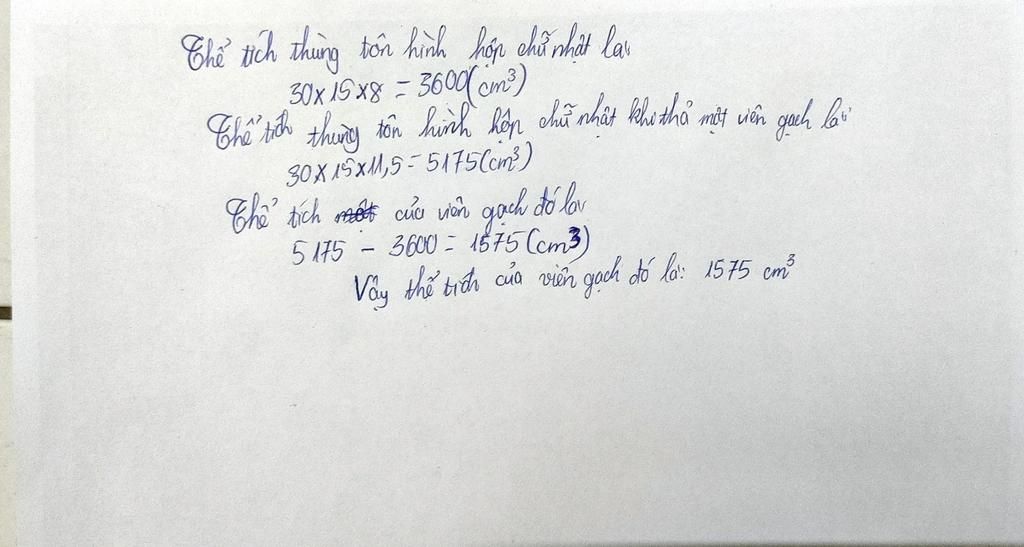 Thể tích thùng tôn hình hộp chữ nhật là:
30 x 15 x 8 = 3600 (cm³)
Thể tích thùng tôn hình hộp chữ nhật khi thả một viên gạch là:
30 x 15 x 11,5 = 5175 (cm³)
Thể tích của viên gạch đó là
5175 - 3600 = 1575 (cm³)
Vậy thể tích của viên gạch đó là: 1575 cm³